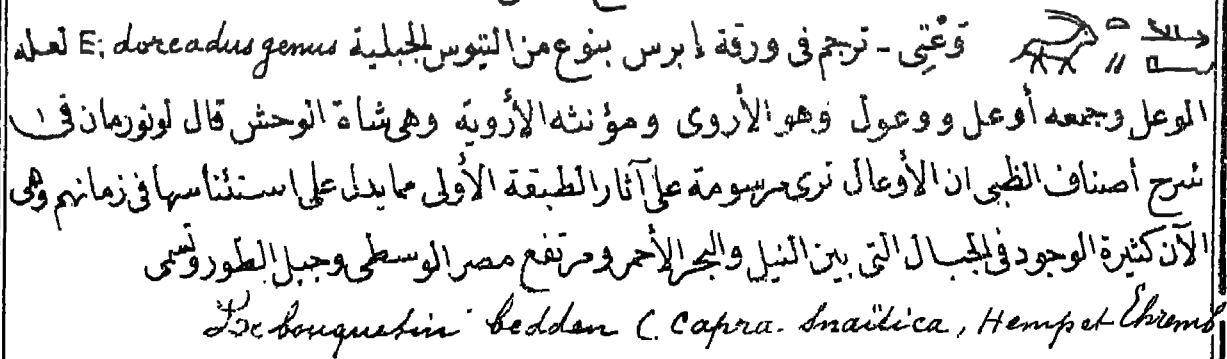 قَوَعْتِى - ترجم فى ورقة إبرس بنوع من التيوس الجبلية E; doreadus genus لعله
الوعل وجمعه أوعل ووعول وهو الأروى ومؤنثه الأروية وهى شاة الوحش قال لونورمان فى
شرح أصناف الظبى ان الأوعال ترى مرسومة على آثار الطبقة الأولى مما يدل على استئناسها فى زمانهم وهى
الآن كثيرة الوجود فى الجبال التى بين النيل والبحر الأحمر ومرتفع مصر الوسطى وجبل الطور وتسمى
bouquetin bedden ( Capra. Snaïtica, Hemp et Ehremb